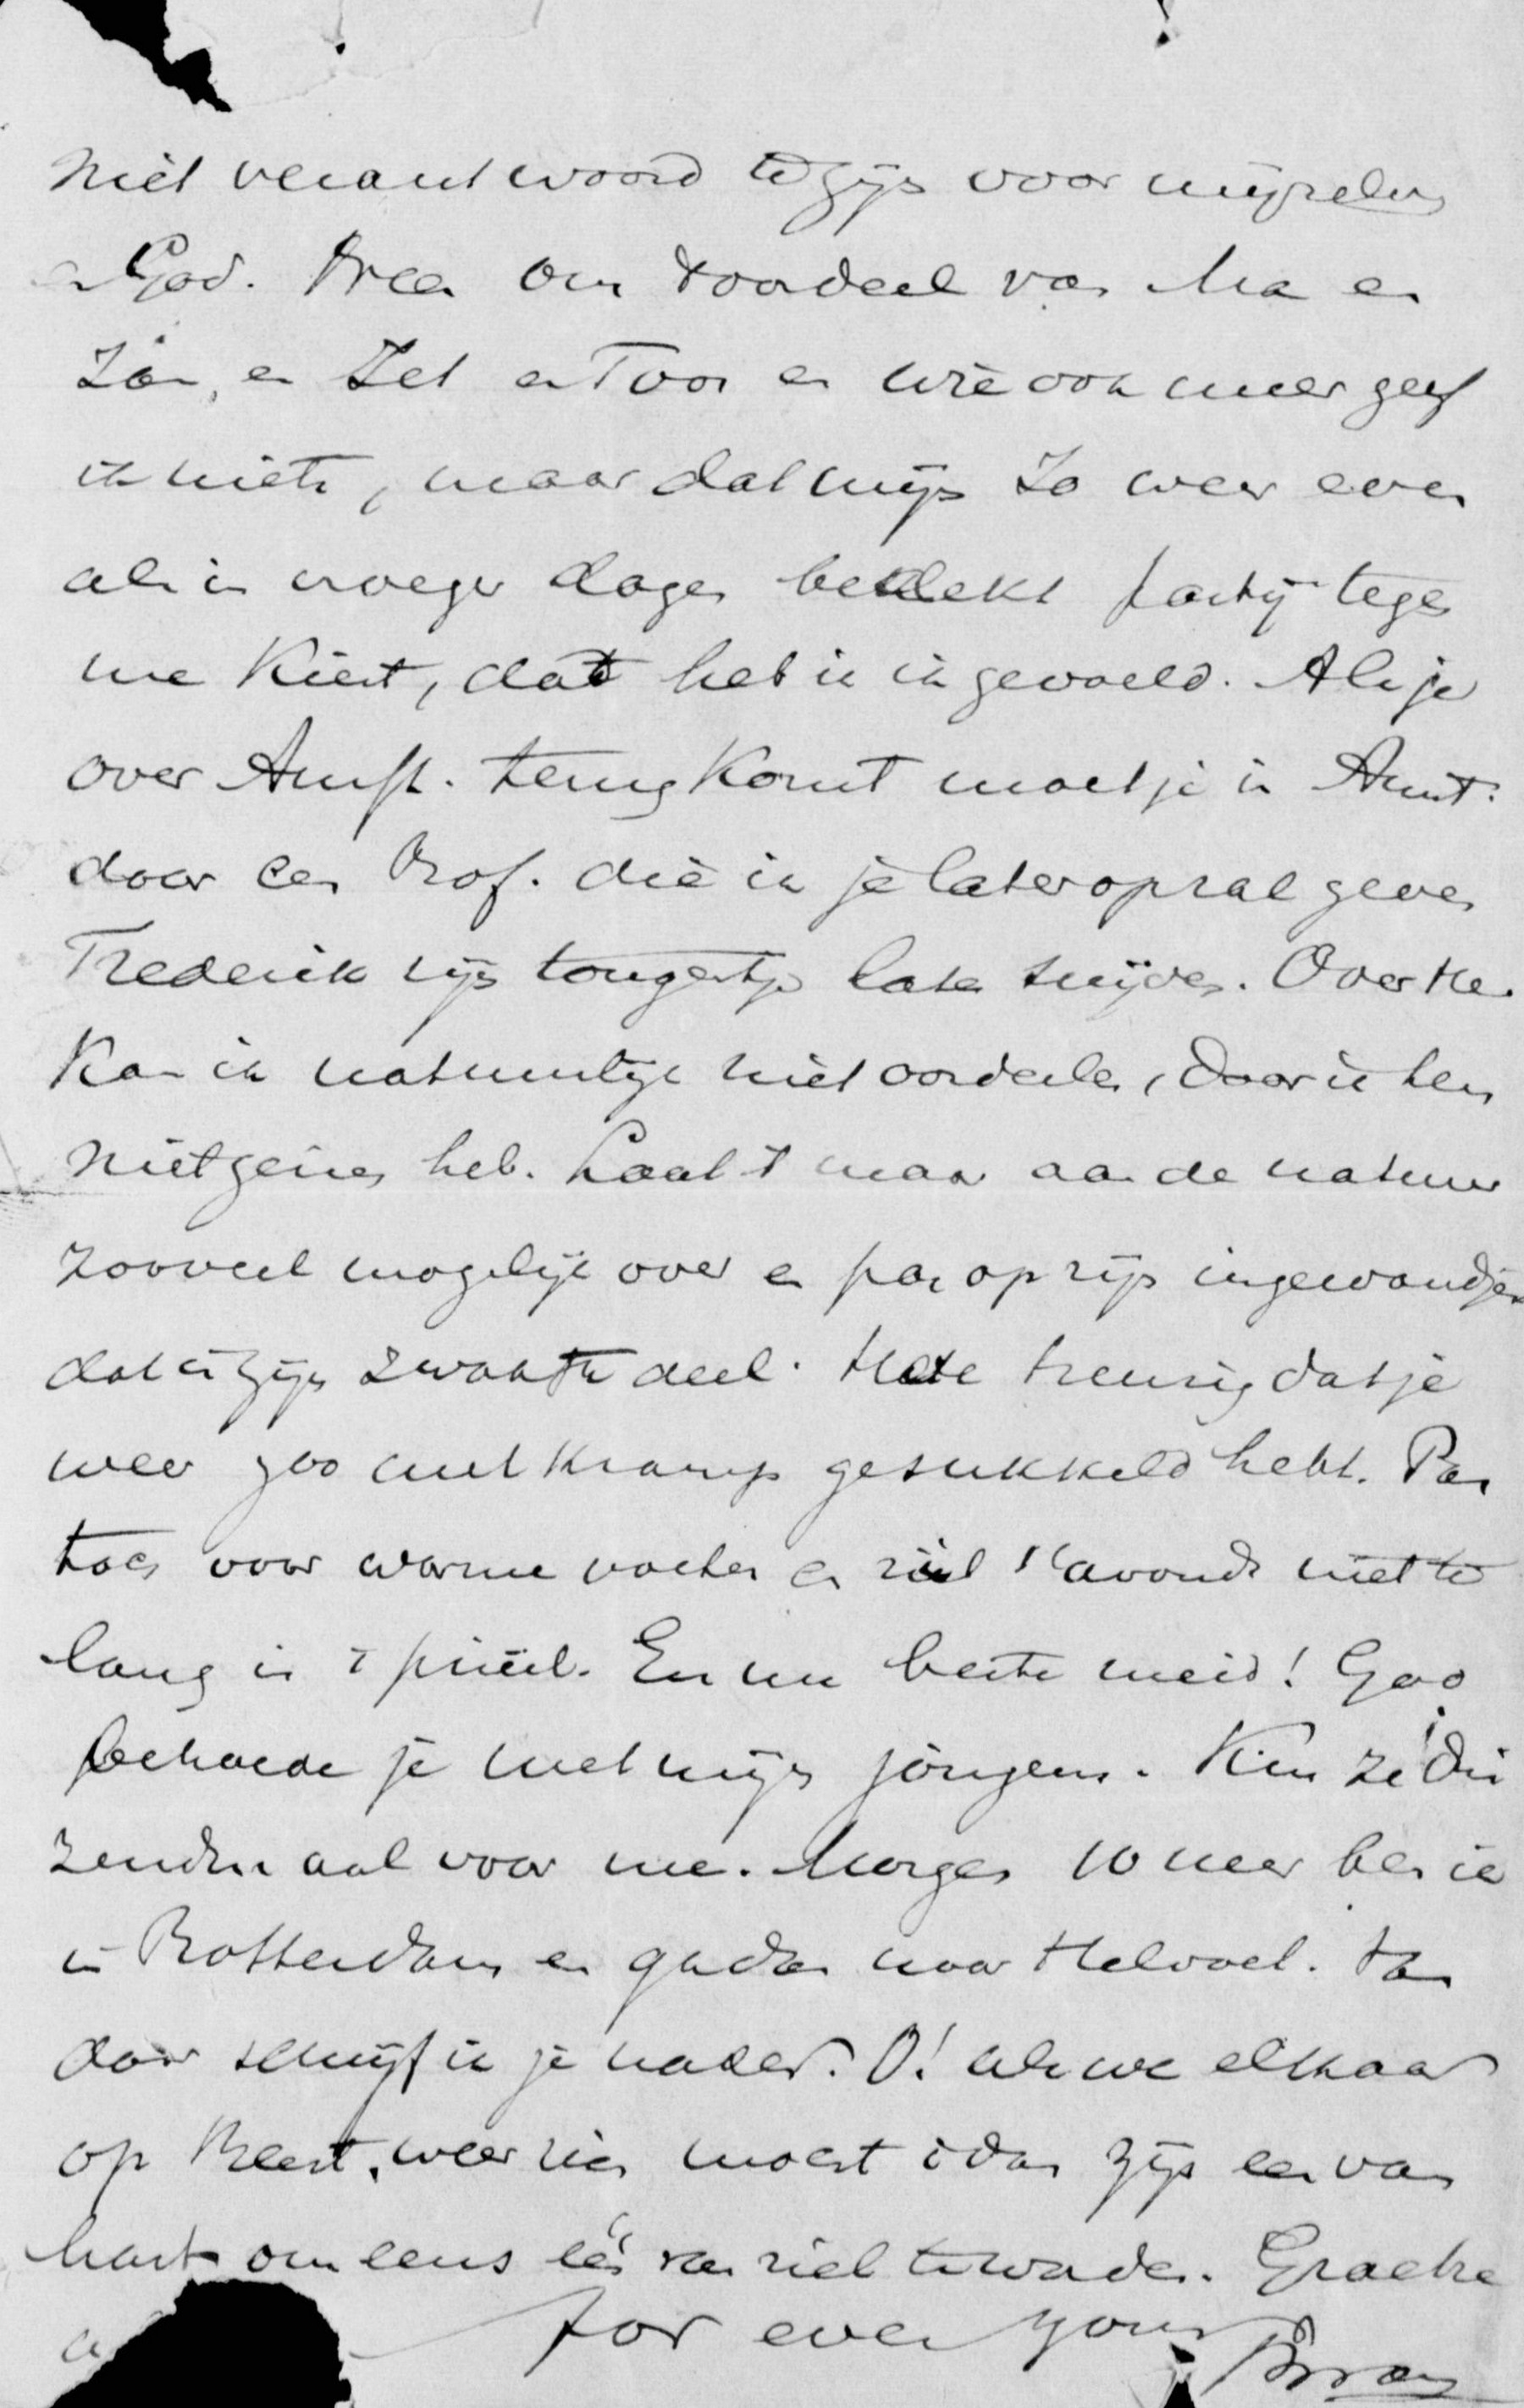 niet verantwoord te zijn voor mijzelven
en God. Maar om oordeel van Ma en
Jan, en Jet en Toon en wie ook meer geef
ik niets, maar dat mijn Jo weer even
als in vroeger dagen bedekt partij tegen
me kiest, dat heb ik ingevoeld. Als je
over Amst. terug komt moet je in Amst.
door een Prof. die ik je later op zal geven
Frederik zijn tongetje laten snijden. Over
kan ik natuurlijk niet oordeelen, daar ik hem
niet gezien heb. Laat 't maar aan de natuur
zooveel mogelijk over en pas op zijn ingewandjes
dat is zijn zwakste deel. Hoe treurig dat je
weer zoo met kramp gesukkeld hebt. Pas
toch voor warme voeten en zit 's avonds niet te
lang in 't prieel. En nu beste meid! God
behoede je met mijn jongens. Kus ze die
zendmaal voor me. Morgen 10 uur ben ik
in Rotterdam en ga dan naar Helvoet. Van
daar schrijf ik je nader. O! als we elkaar
op weer zien moest 't dan zijn een van
hart om eens één van ziel te worden.
for ever yours
Bram